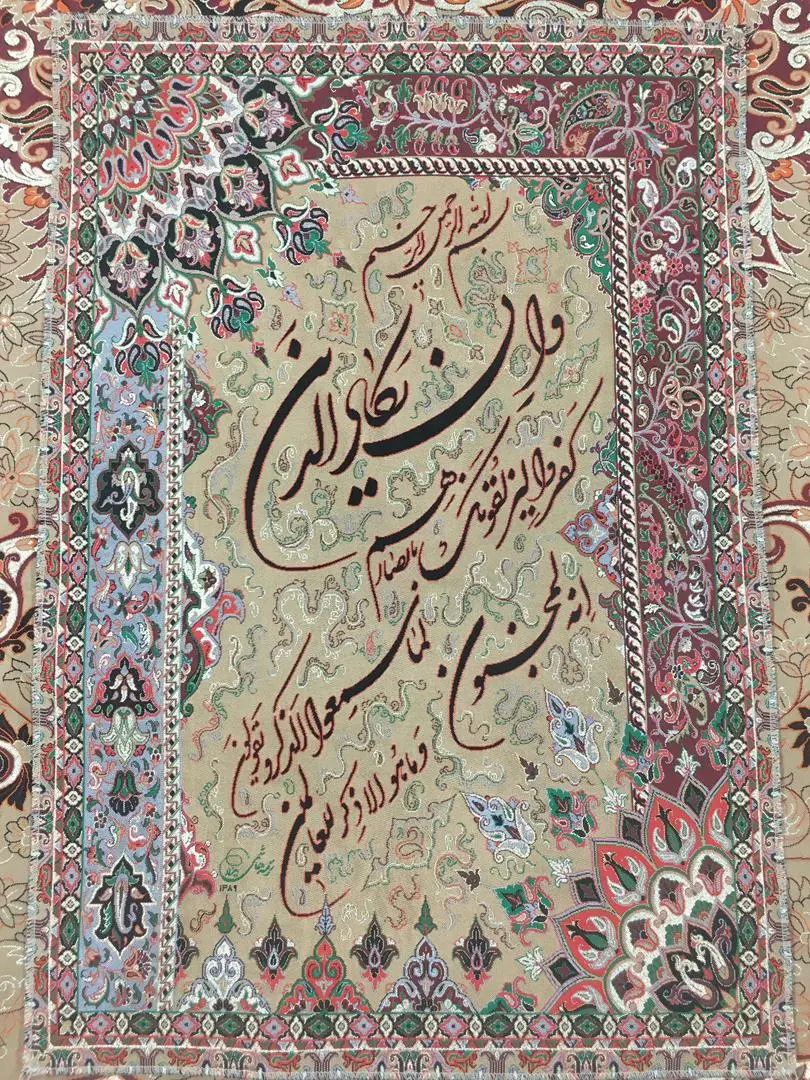 بسم الله الرحمن الرحیم
وان یکاد الذین
کفروا لیزلقونک
بابصارهم
لما سمعوا الذکر و یقولون
انه لمجنون
وما هو الا ذکر للعالمین
۱۳۸۹